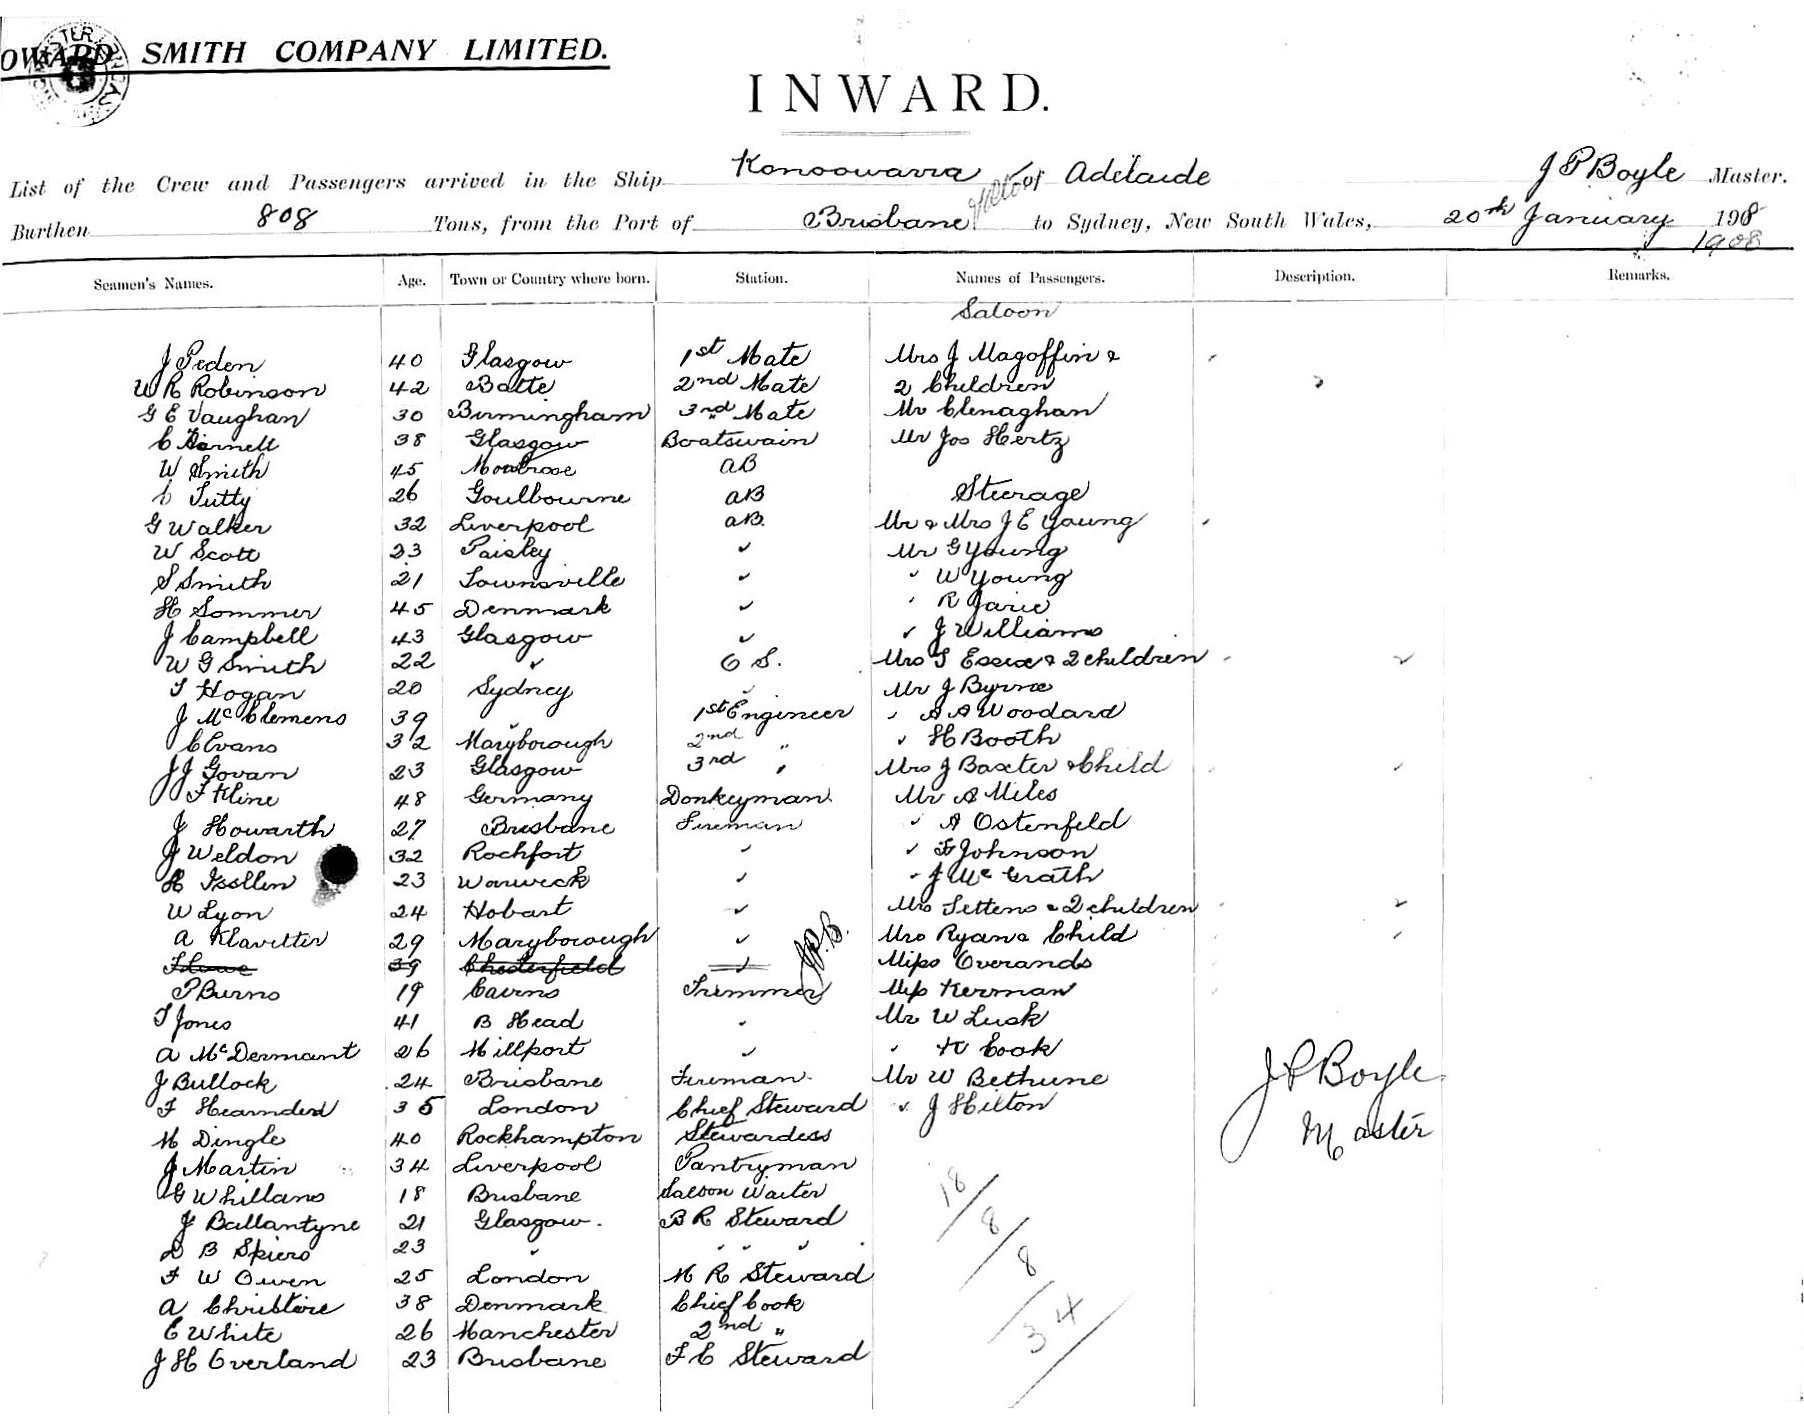 OWARD SMITH COMPANY LIMITED.
INWARD.
List of the Crew and Passengers arrived in the Ship Konoowarra of Adelaide J P Boyle Master.
Burthen 808 Tons, from the Port of Brisbane to Sydney, New South Wales, 20th January 1908
1908
Seamen's Names. Age. Town or Country where born. Station. Names of Passengers. Description. Remarks.
Saloon
J Peden 40 Glasgow 1st Mate Mrs J Magoffin &
W R Robinson 42 Batte 2nd Mate 2 Children
G E Vaughan 30 Birmingham 3rd Mate Mr Clenaghan
C Darnell 38 Glasgow Boatswain Mr Jos Hertz
W Smith 45 Montrose AB
Tutty 26 Goulbourne AB Steerage
G Walker 32 Liverpool AB. Mr & Mrs J E Young
W Scott 23 Paisley ✓ Mr G Young
S Smith 21 Townsville ✓ ✓ W Young
H Sommer 45 Denmark ✓ ' R Jarie
J Campbell 43 Glasgow ✓ ✓ J Williams
W G Smith 22 ✓ O S. Mrs S Essex & 2 children
T Hogan 20 Sydney Mr J Byrne
J McClemens 39 ✓ 1st Engineer ✓ A A Woodard
C Evans 32 Maryborough 2nd " ✓ H Booth
J J Govan 23 Glasgow 3rd " Mrs J Baxter & Child
F Kline 48 Germany Donkeyman Mr A Miles
J Howarth 27 Brisbane Fireman ✓ A Ostenfeld
J Weldon 32 Rochfort ✓ ✓ F Johnson
H Issllin 23 Warwick ✓ ✓ J McGrath
W Lyon 24 Hobart ✓ Mrs Settens & 2 children
A Klavetter 29 Maryborough ✓ Mrs Ryan & Child
39 Chesterfield ✓ Miss Overands
P Burns 19 Cairns Trimmer Miss Kerman
T Jones 41 B Head ✓ Mr W Lusk
A McDermant 26 Millport ✓ ✓ Cook
J Bullock 24 Brisbane Fireman Mr W Bethune
F Hearnden 35 London Chief Steward ✓ J Hilton
M Dingle 40 Rockhampton Stewardess
J Martin 34 Liverpool Pantryman
G Whillans 18 Brisbane Saloon Waiter
J Ballantyne 21 Glasgow. B R Steward
D B Spiers 23 ✓ ✓ ✓ ✓
F W Owen 25 London M R Steward
A Christine 38 Denmark Chief Cook
E White 26 Manchester 2nd "
J H Overland 23 Brisbane F C Steward
J P Boyle
Master
18
8
8
34